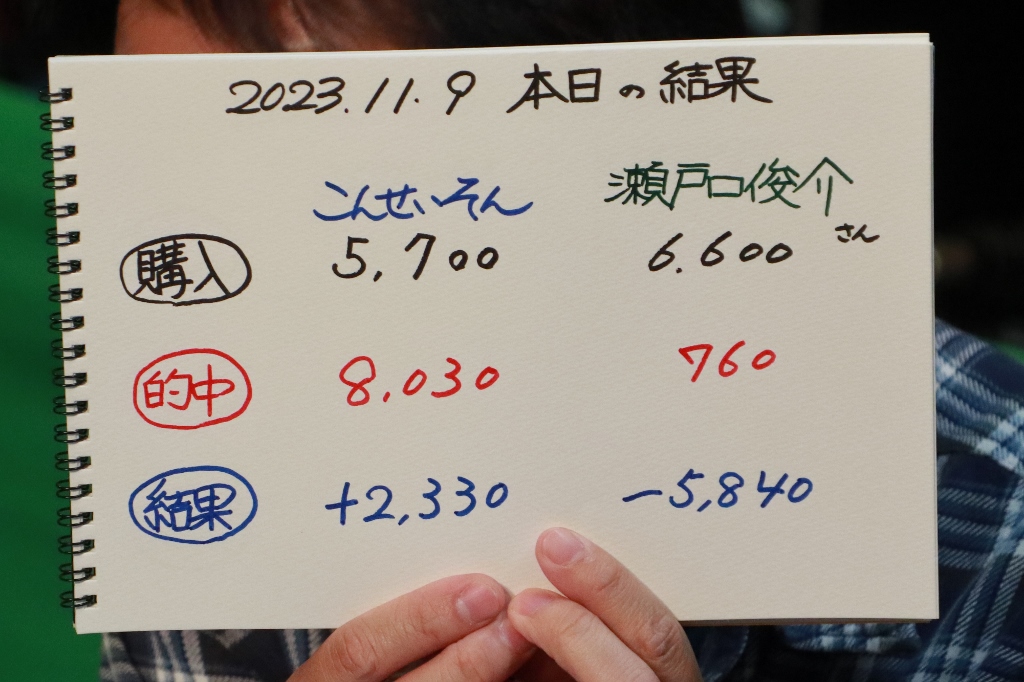 2023.11.9 本日の結果
こんせいそん 瀬戸口俊介さん
購入 5,700 6.600
的中 8,030 760
結果 +2,330 -5,840